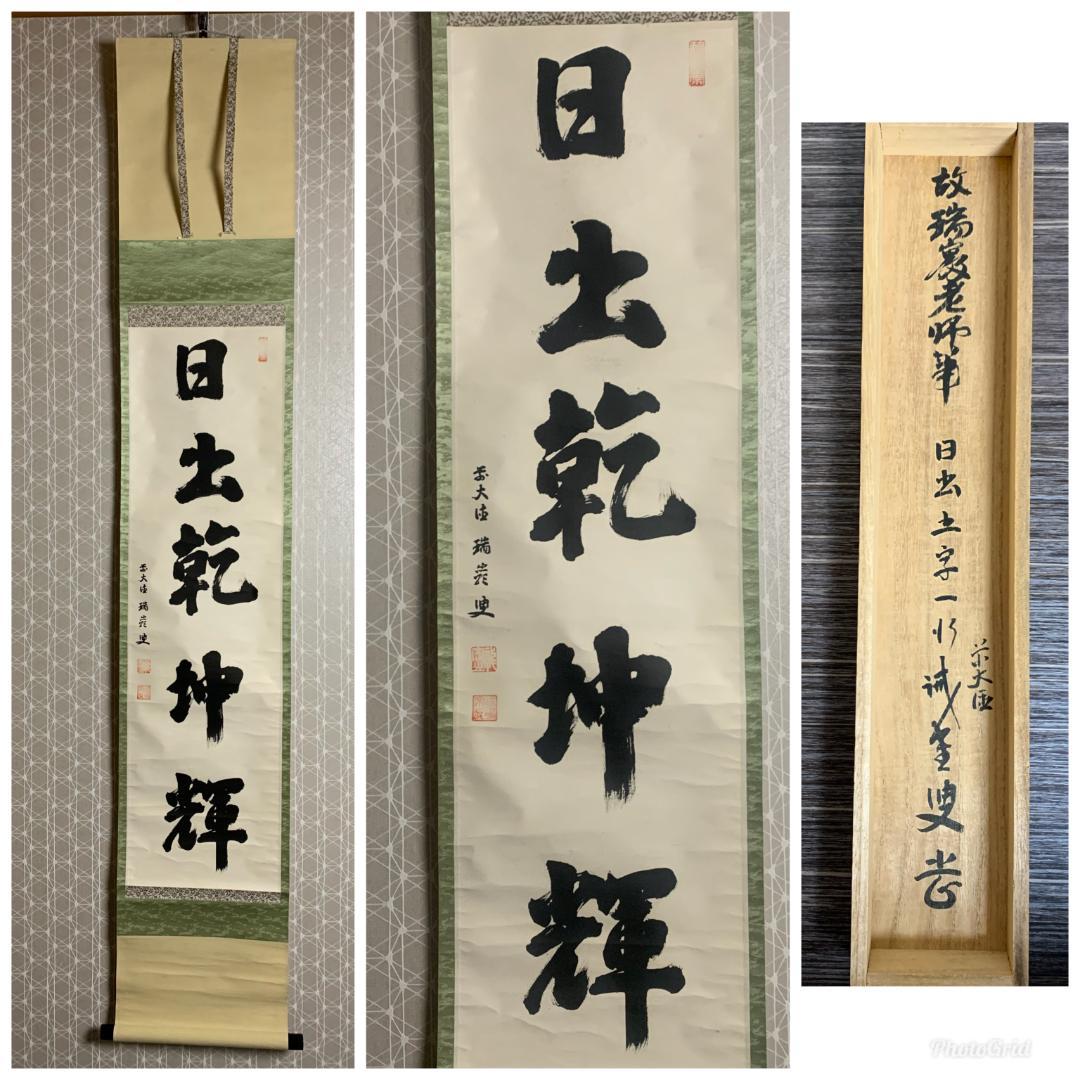 日出乾坤輝
前大徳 瑞巌叟
日出乾坤輝
前大徳 瑞巌叟
故瑞巌老師筆 日出五字一行
前大徳
誠堂叟
PhotoGrid